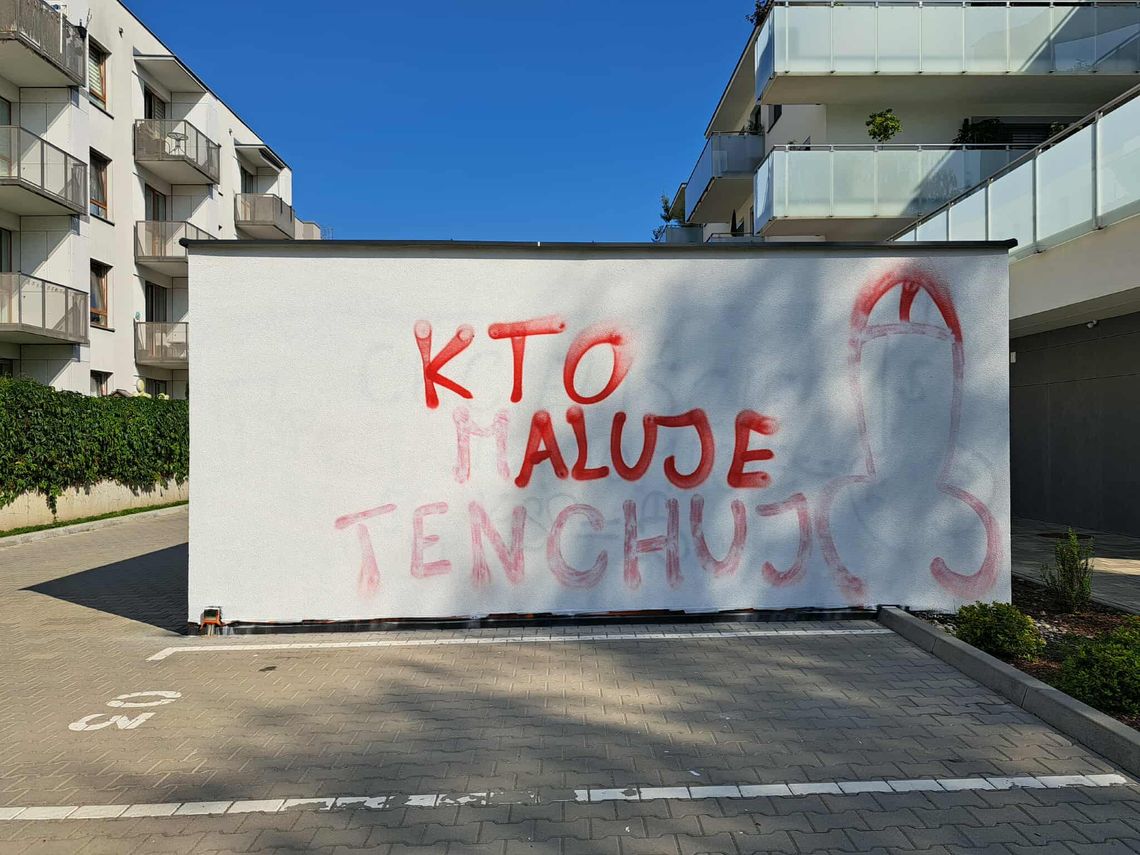 KTO
MALUJE
TENCHUJ
30